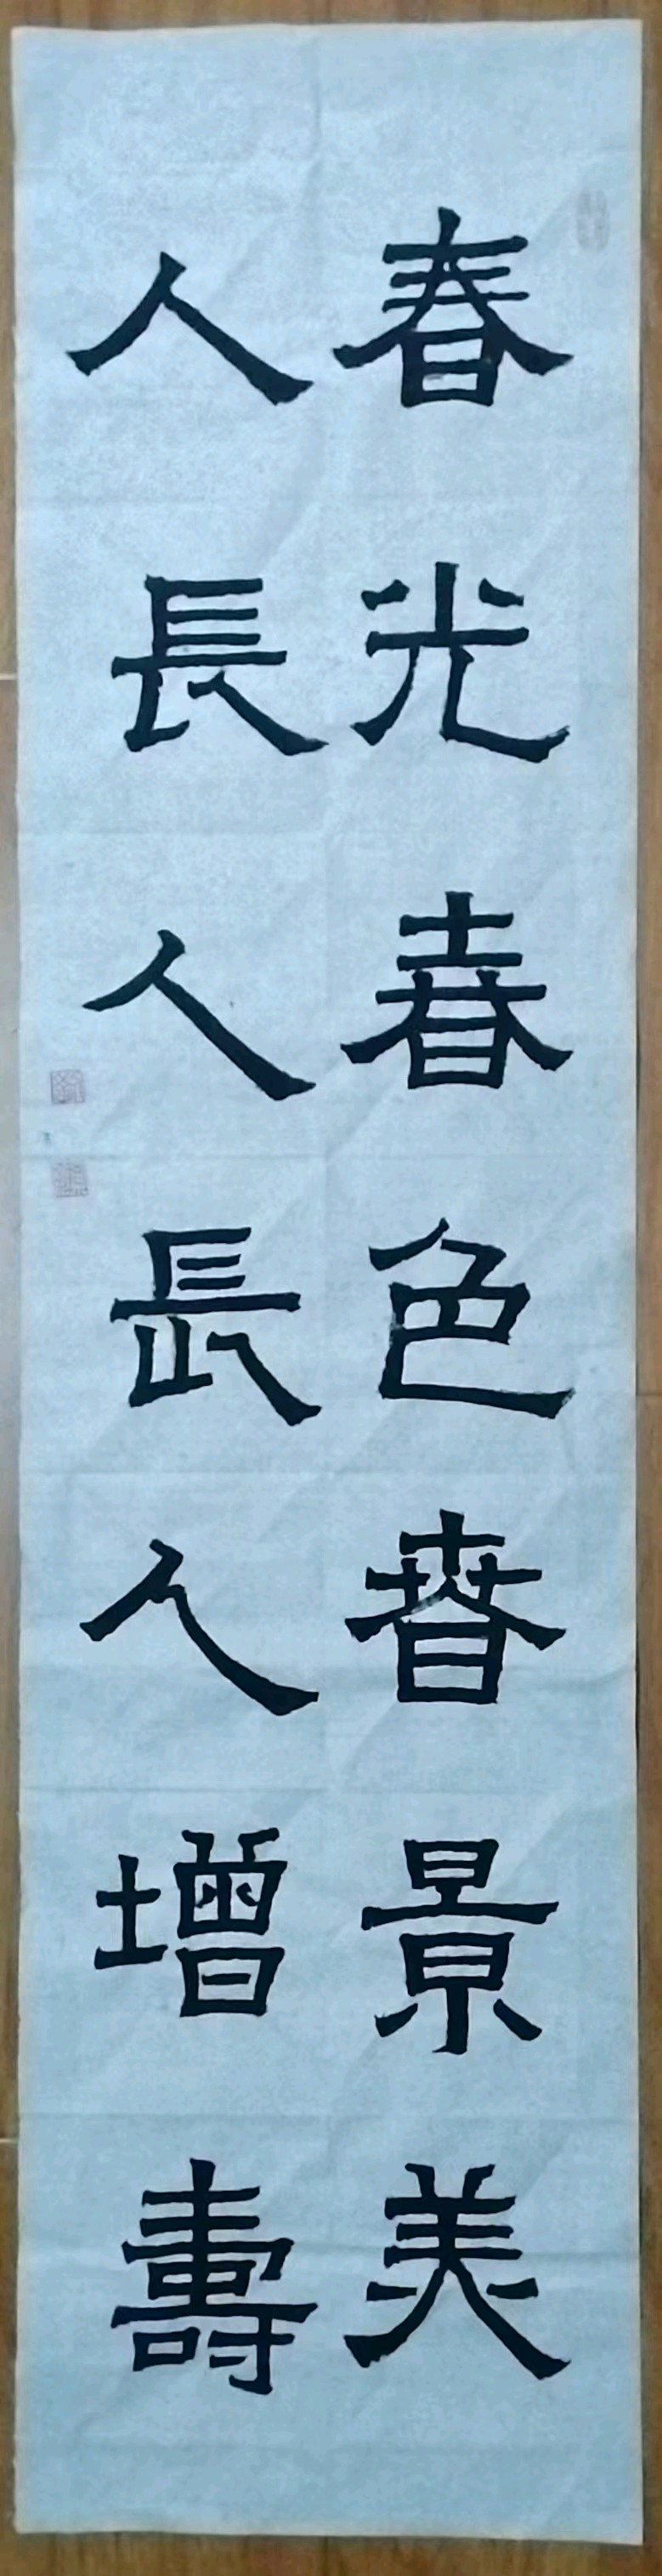 春光春色春景美
人長人長人增壽